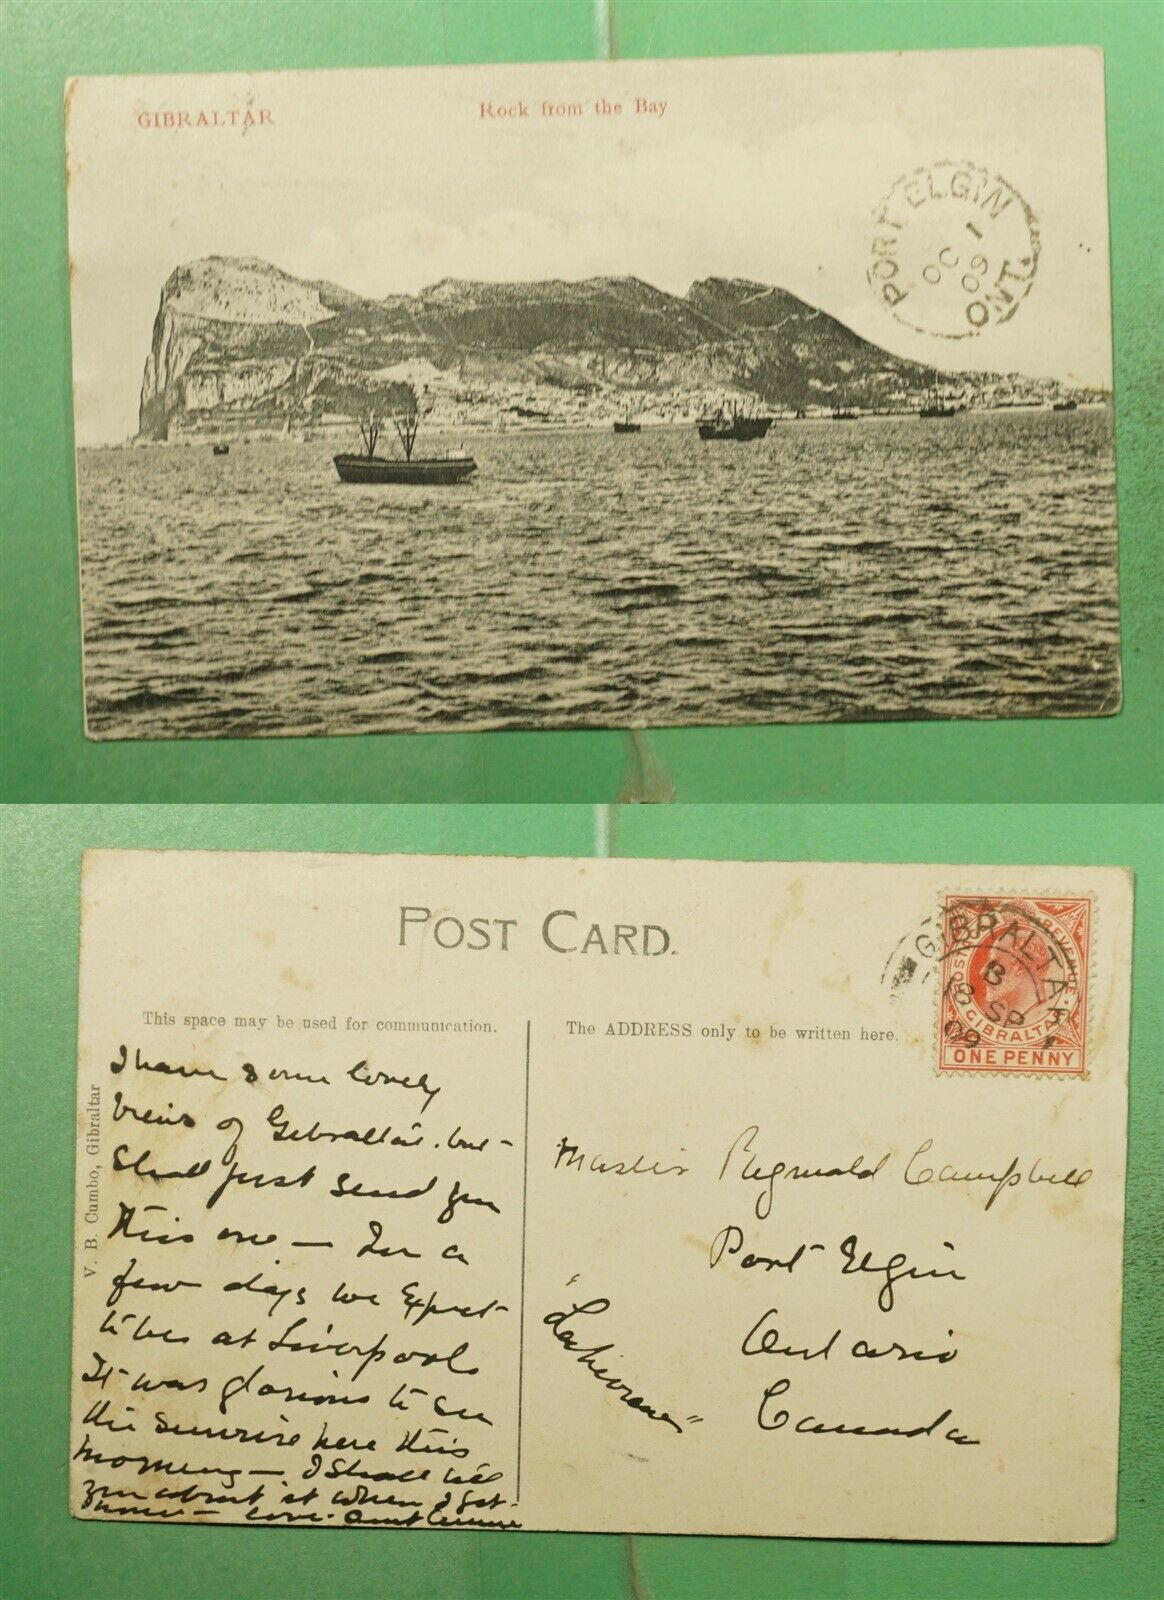 GIBRALTAR
Rock from the Bay
PORT ELGIN
OC 1
09
ONT.
POST CARD.
This space may be used for communication.
The ADDRESS only to be written here.
V. B. Cumbo, Gibraltar
GIBRALTAR
B
8 SP
09
POSTAGE REVENUE
GIBRALTAR
ONE PENNY
I have some lovely
views of Gibraltar. but
shall just send you
this one — In a
few days we expect
to be at Liverpool
It was glorious to see
the sunrise here this
morning — I shall tell
you about it when I get
home — love. Aunt
Master Reginald Campbell
Port Elgin
Ontario
Canada